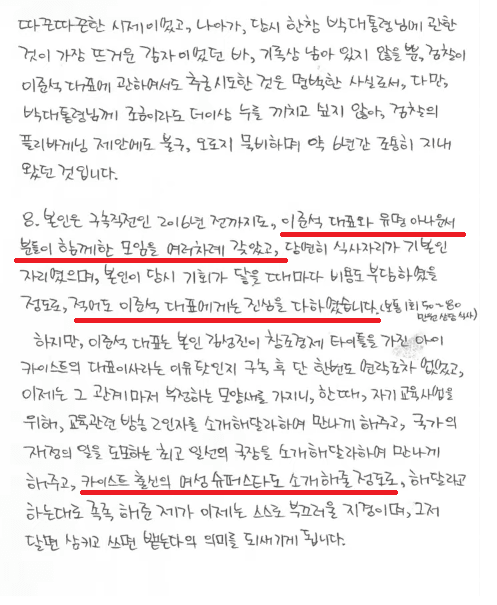 따끈따끈한 시제이었고, 나아가, 당시 한창 박대통령님에 관한
것이 가장 뜨거운 감자이었던 바, 기록상 남아 있지 않을 뿐, 검찰이
이준석 대표에 관하여서도 추궁시도한 것은 명백한 사실로서, 다만,
박대통령님께 조금이라도 더이상 누를 끼치고 보지 않아, 검찰의
플리바게닝 제안에도 불구, 오로지 묵비하며 약 6년간 조용히 지내
왔던 것입니다.
8. 본인은 구속직전인 2016년 전까지도, 이준석 대표와 유명 아나운서
분들이 함께한 모임을 여러차례 갖았고, 당연히 식사자리가 기본인
자리였으며, 본인이 당시 기회가 닿을 때마다 비용도 부담하였을
정도로, 적어도 이준석 대표에게는 진심을 다하였습니다. (보통 1회 50~80
만원 상당 식사)
하지만, 이준석 대표는 본인 김성진이 창조경제 타이틀을 가진 아이
카이스트의 대표이사라는 이유 탓인지 구속 후 단 한번도 연락조차 없었고,
이제는 그 관계마저 부정하는 모양새를 가지니, 한때, 자기 교육사업을
위해, 교육관련 방송 2인자를 소개해달라하여 만나게 해주고, 국가의
재정의 일을 도모하는 최고 일선의 국장을 소개해달라하여 만나게
해주고, 카이스트 출신의 여성 슈퍼스타도 소개해줄 정도로, 해달라고
하는대로 족족 해준 제가 이제는 스스로 부끄러울 지경이며, 그저
달면 삼키고 쓰면 뱉는다의 의미를 되새기게 됩니다.